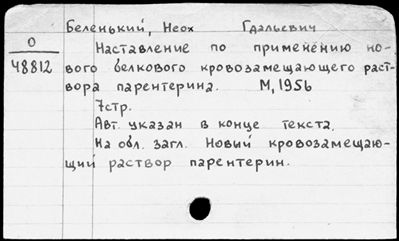 Беленький, Неох Гдальевич
О
48812
Наставление по применению но-
вого белкового кровозамещающего раст-
вора парентерина. М, 1956
7стр.
Авт. указан в конце текста.
На обл. загл. Новый кровозамещаю-
щий раствор парентерин.